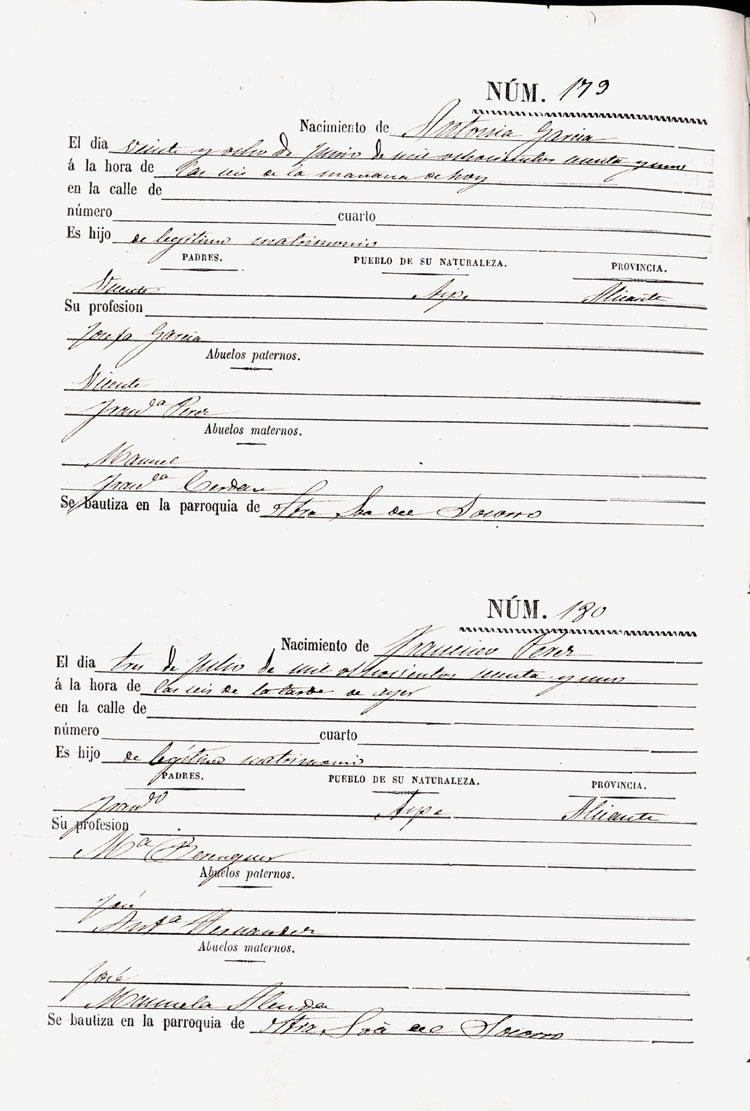 NÚM. 179
Nacimiento de Antonia Garcia
El dia veinte y ocho de Junio de mil ochocientos sesenta y uno
á la hora de las seis de la mañana de hoy
en la calle de
número cuarto
Es hijo de legítimo matrimonio
PADRES. PUEBLO DE SU NATURALEZA. PROVINCIA.
Vicente Aspe Alicante
Su profesion
Josefa Garcia
Abuelos paternos.
Vicente
Franca Perez
Abuelos maternos.
Manuel
Franca Cerdan
Se bautiza en la parroquia de Ntra Sra del Socorro
NÚM. 180
Nacimiento de Francisco Perez
El dia tres de Julio de mil ochocientos sesenta y uno
á la hora de las seis de la tarde de ayer
en la calle de
número cuarto
Es hijo de legítimo matrimonio
PADRES. PUEBLO DE SU NATURALEZA. PROVINCIA.
Aspe Alicante
Su profesion
Ma Berenguer
Abuelos paternos.
José
Anta Hernandez
Abuelos maternos.
José
Manuela Alenda
Se bautiza en la parroquia de Ntra Sra del Socorro